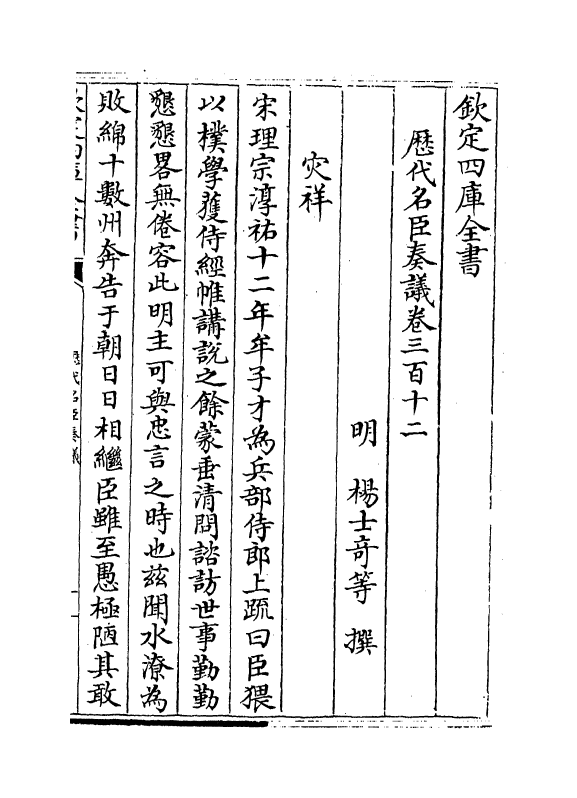 欽定四庫全書
歷代名臣奏議卷三百十二
明 楊士奇等 撰
灾祥
宋理宗淳祐十二年牟子才為兵部侍郎上疏曰臣猥
以樸學獲侍經帷講說之餘蒙垂清問諮訪世事勤勤
懇懇畧無倦容此明主可與忠言之時也兹聞水潦為
敗綿十數州奔告于朝日日相繼臣雖至愚極陋其敢
歷代名臣奏議
一